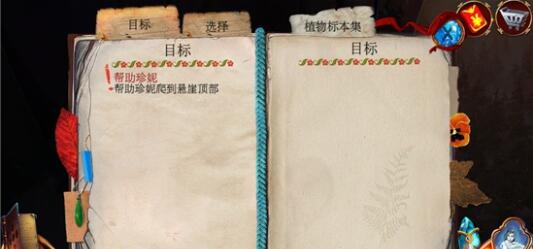 目标
选择
植物标本集
目标
帮助珍妮
帮助珍妮爬到悬崖顶部
目标